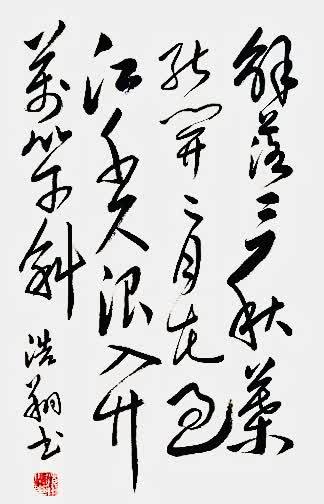 解落三秋葉
能開二月花過
江千尺浪入竹
萬竿斜
浩翔书